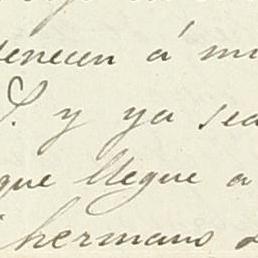 tenecen á mi
S. y ya sea
que llegue a
hermano